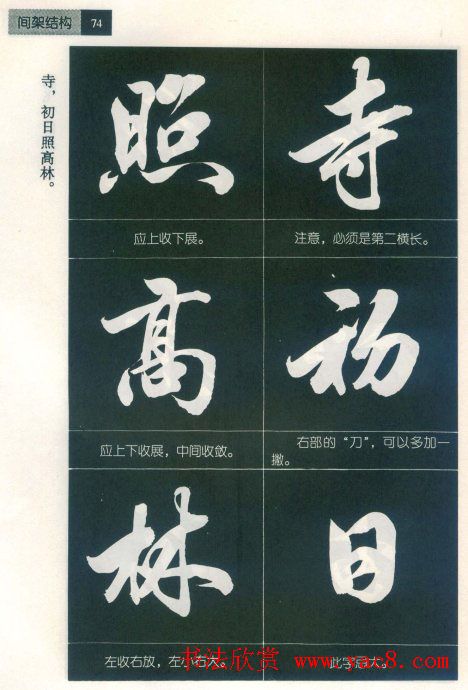 间架结构 74
寺，初日照高林。
寺
注意，必须是第二横长。
初
右部的“刀”，可以多加一
撇。
日
照
应上收下展。
高
应上下收展，中间收敛。
林
左收右放，左小右大。
书法欣赏 www.yac8.com